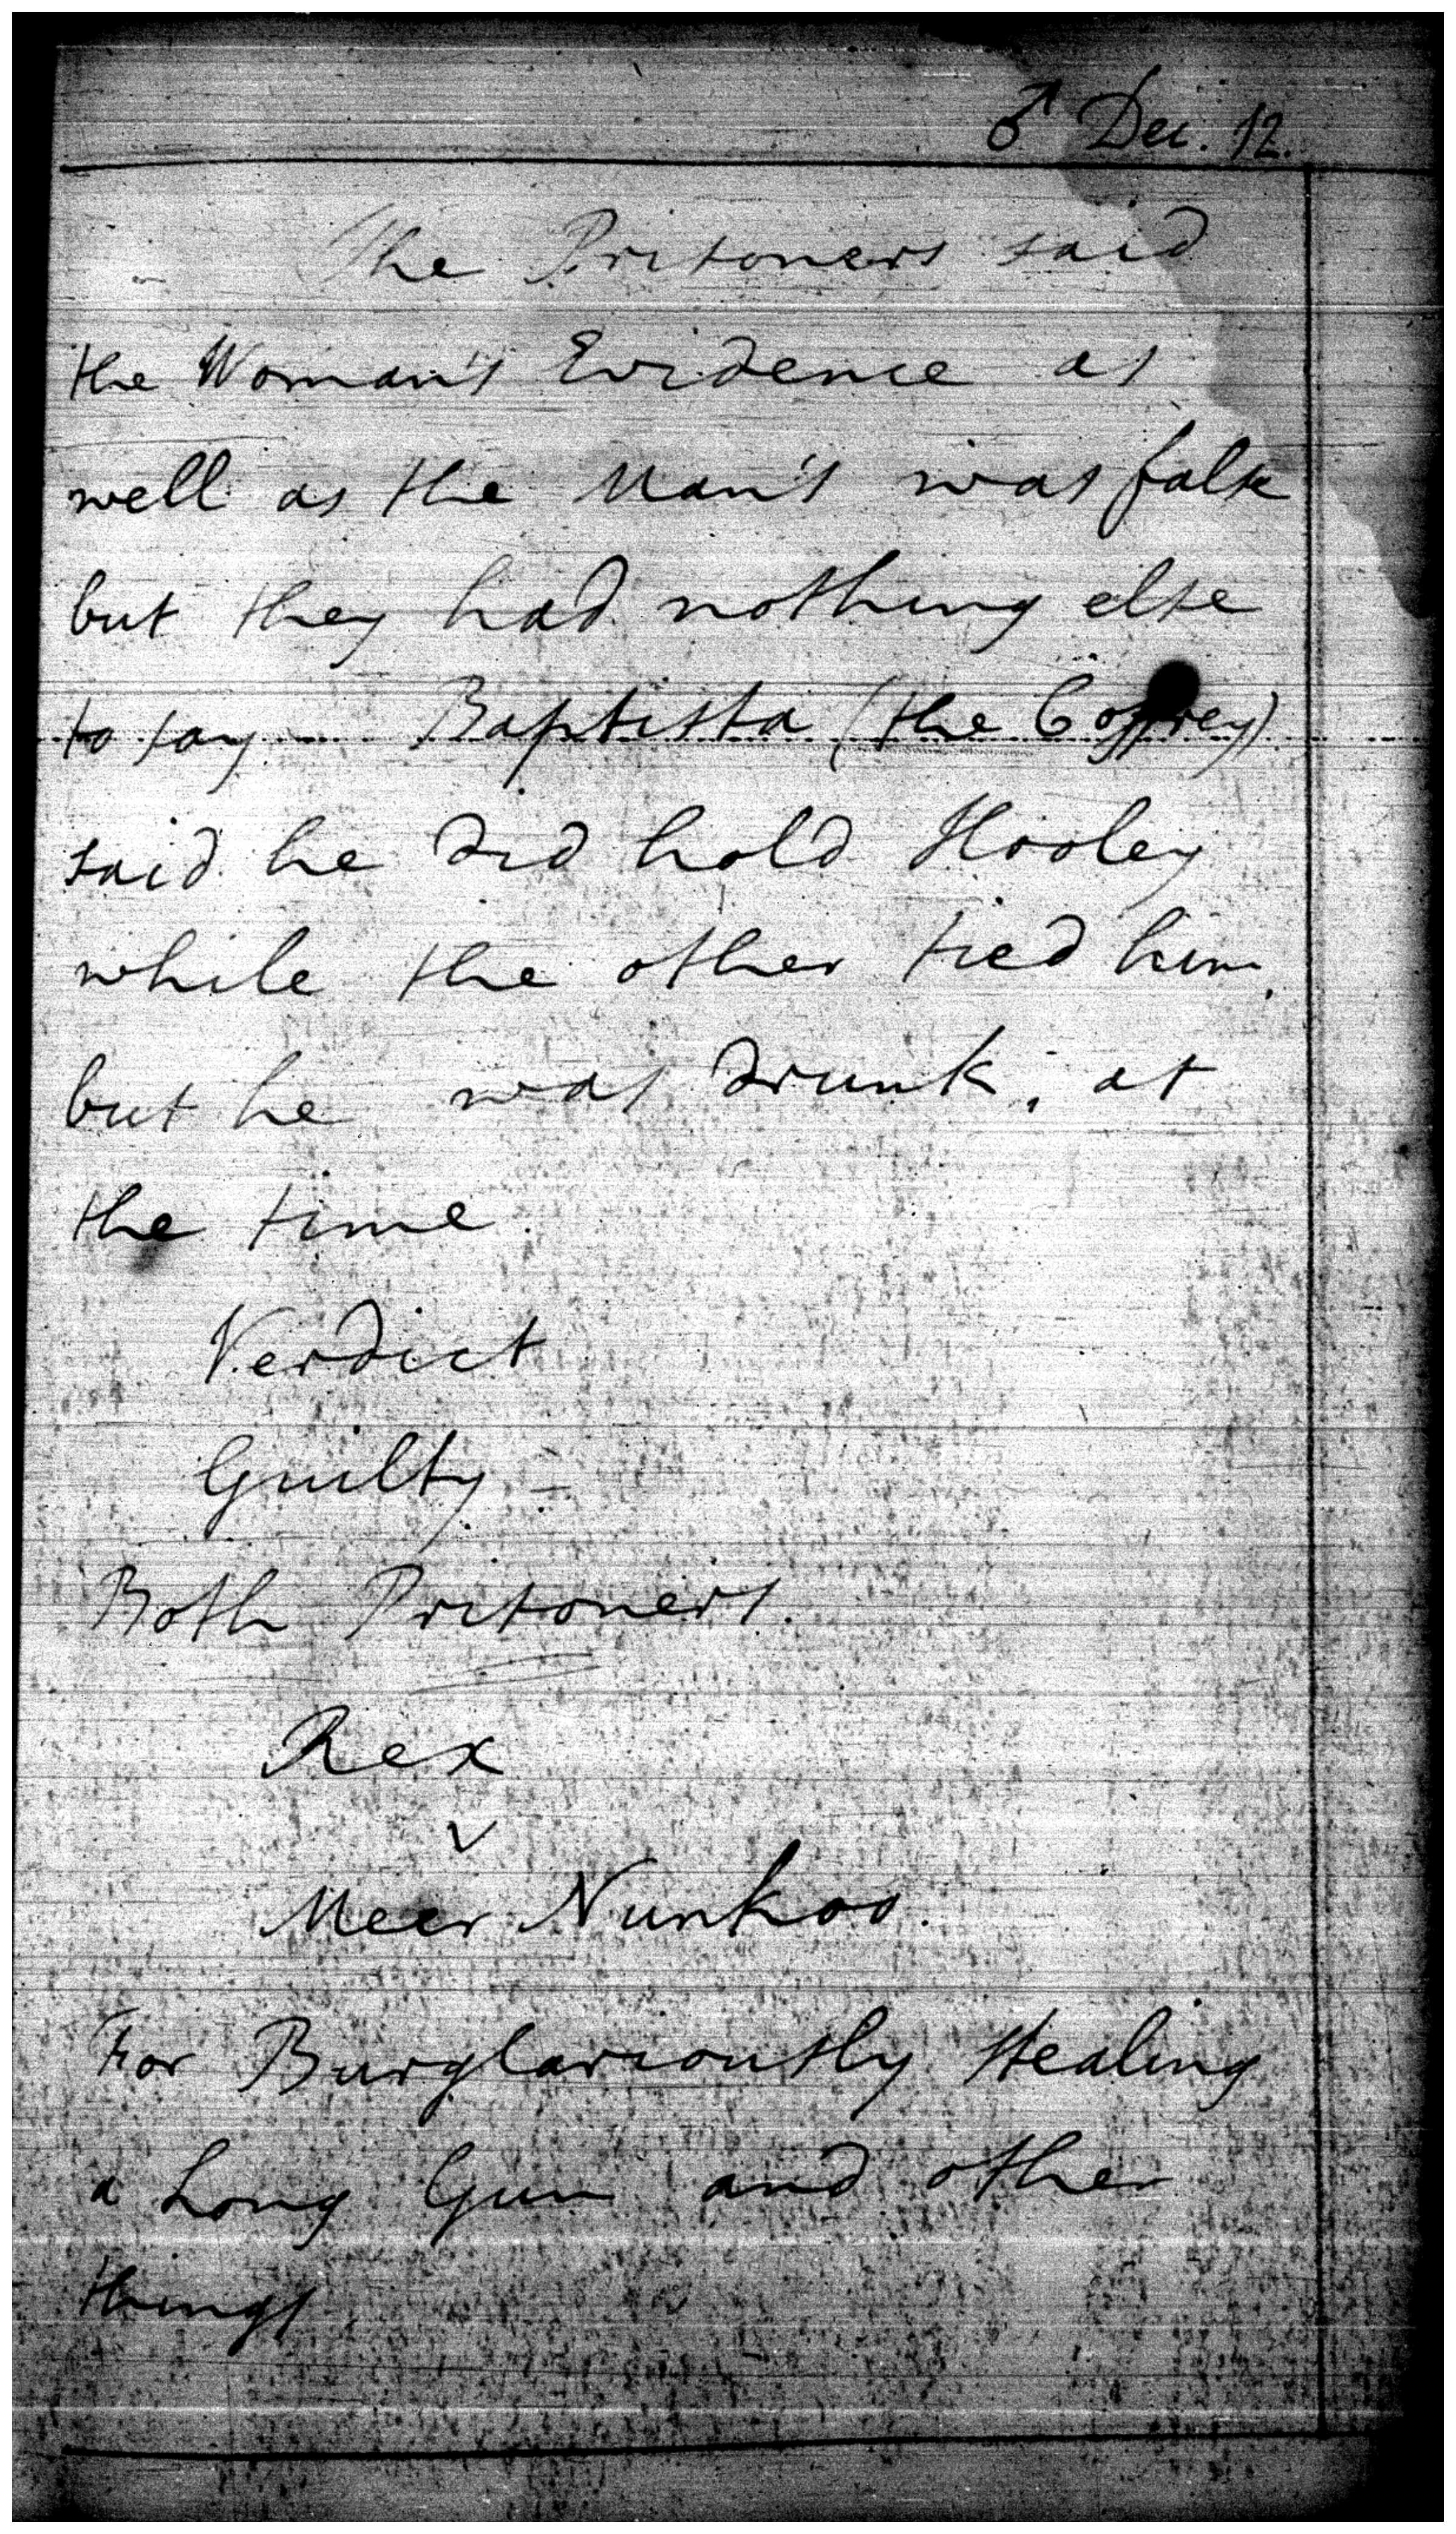 ♂ Dec. 12.
The Prisoners said
the Woman's Evidence as
well as the Man's was false
but they had nothing else
to say — Baptista (the Coffrey)
said he did hold Hooley
while the other tied him,
but he was drunk, at
the time.
Verdict
Guilty —
Both Prisoners.
Rex
v
Meer Nunkoo.
For Burglariously stealing
a Long Gun and other
things.